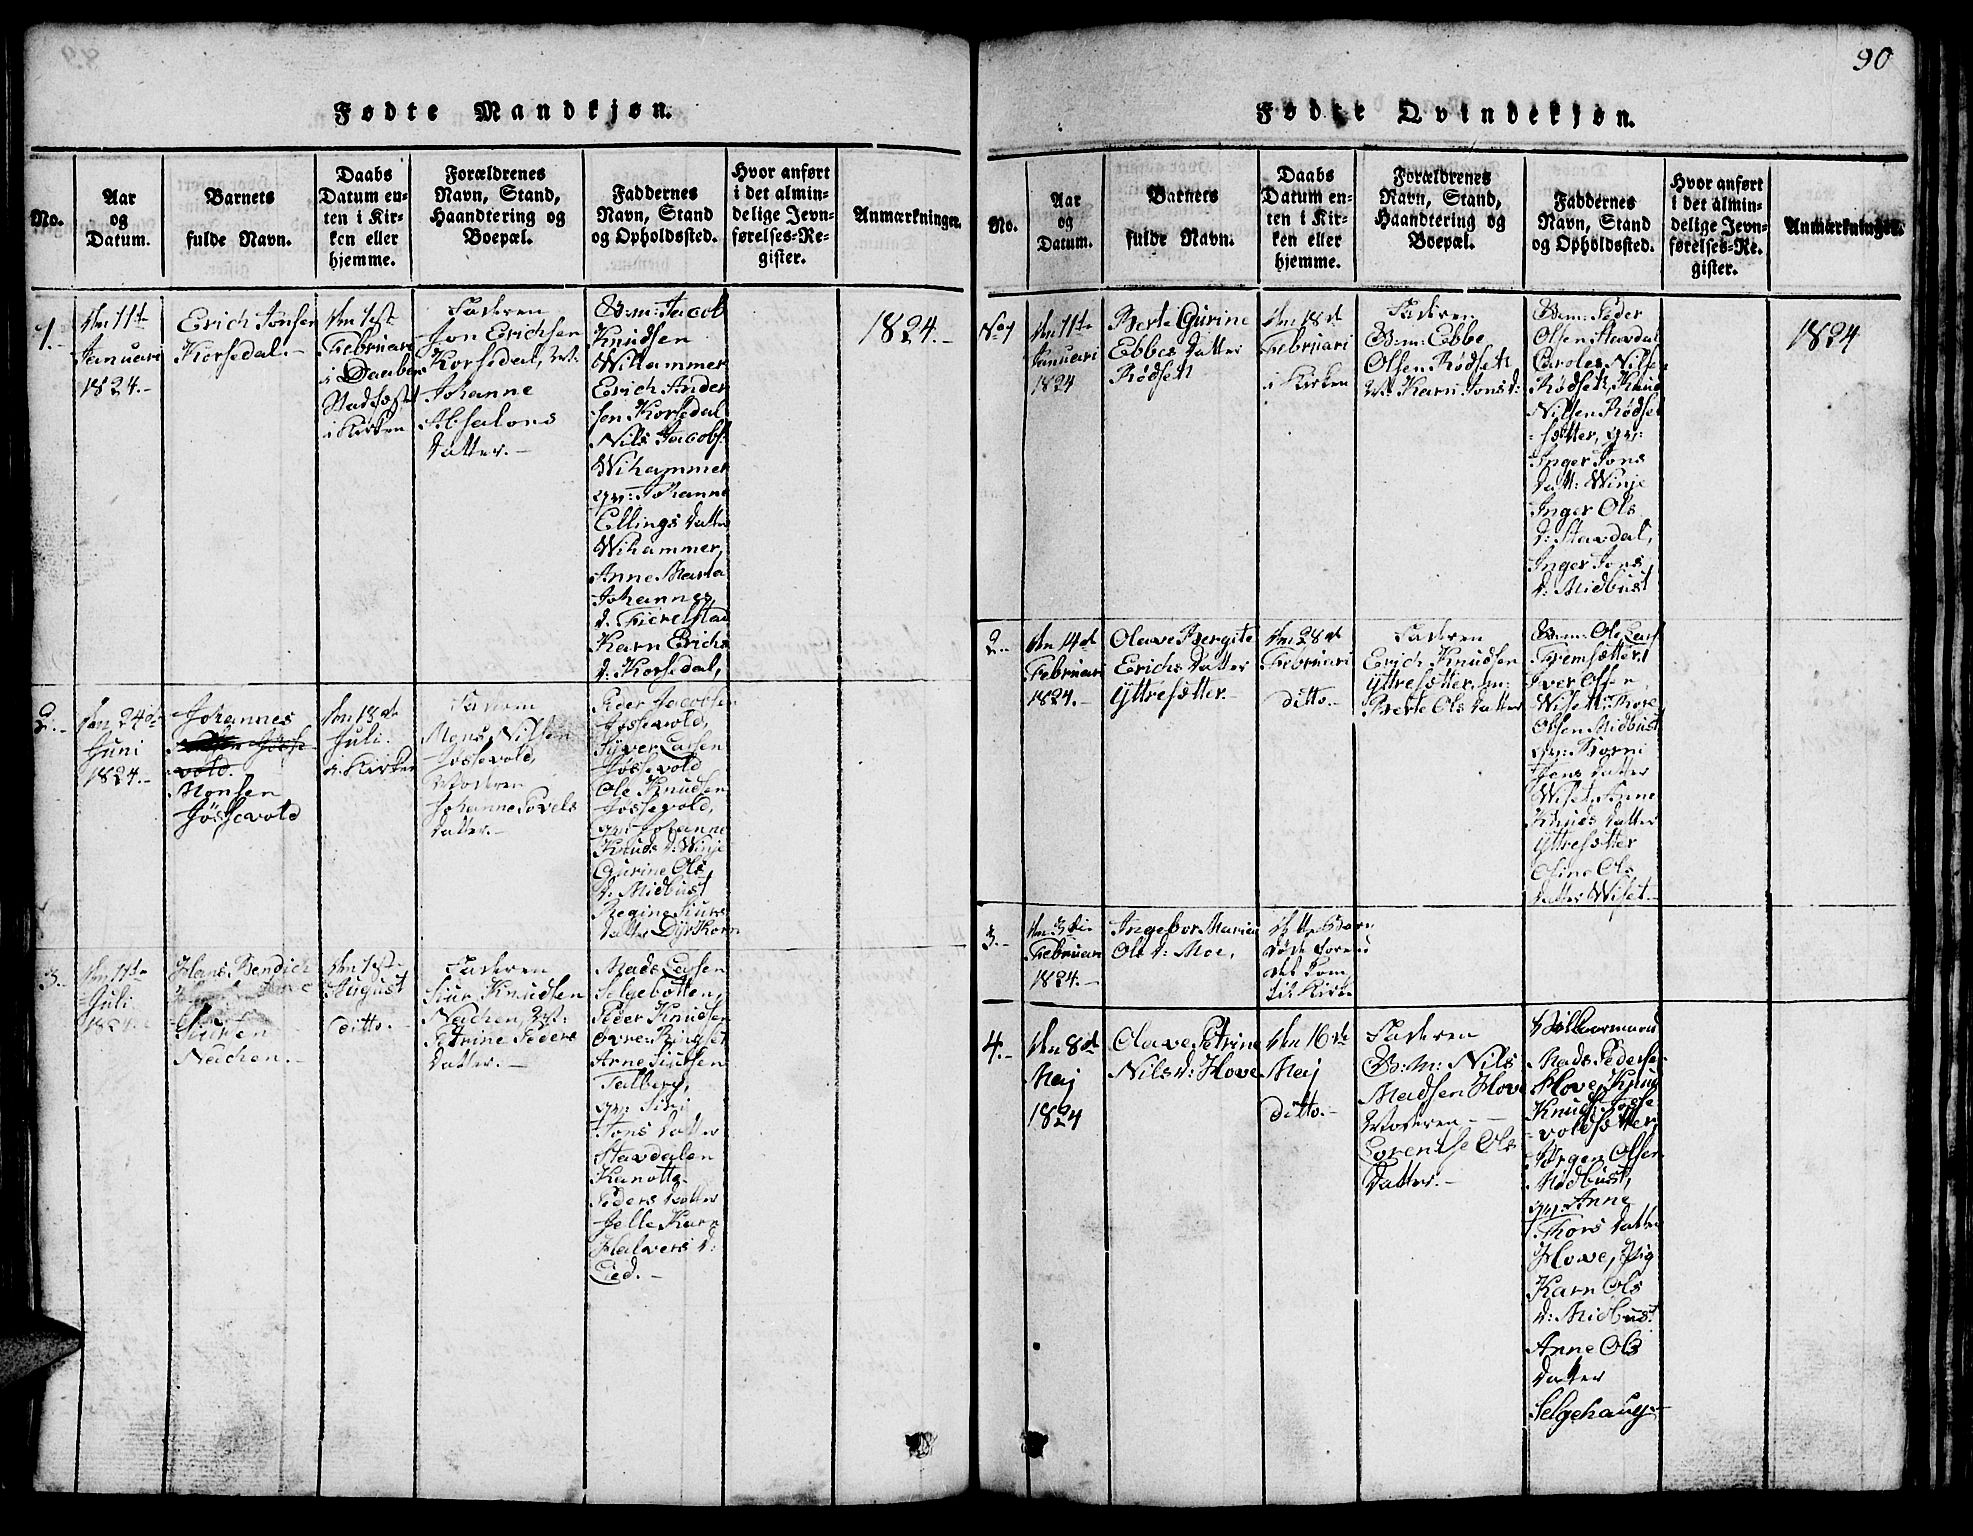 90
Fødte Mandkjøn.
No.
Aar
og
Datum.
Barnets
fulde Navn.
Daabs
Datum en-
ten i Kir-
ken eller
hjemme.
Forældrenes
Navn, Stand,
Haandtering og
Boepæl.
Faddernes
Navn, Stand
og Opholdssted.
Hvor anført
i det almin-
delige Jevn-
førelses-Re-
gister.
Anmærkninger.
1.-
den 11te
Januari
1824.-
Erich Jonsen
Korsedal.-
den 1ste
Februari
i Kirken
Faderen
Jon Erichsen
Korsedal, M:
Johanne
Absalons
datter.-
B:m: Jacob
Knudsen
Wihammer
Erich Ander
sen Korsedal
Nils Jacobs:
Wihammer
qv: Johanne
Ellings datter
Wihammer,
Anne Maria
Johannes
d: Fierelstad
Karn Erichs
d: Korsedal,
1824.-
2.-
den 24de
Juni
1824.-
Johannes
Monsen
Jøssevold
den 18de
Juli
i Kirken
Faderen
Mons Nilsen
Jøssevold,
Moderen
Johanne Povels
datter.-
Peder Jacobsen
Jøssevold,
Syver Larsen
Jøssevold
Ole Knudsen
Jøssevold,
qv: Johanne
Knuds d: Winje
Gurine Ols
d: Midbust
Regine Siurs
datter Dyrkorn
3.-
den 11te
Juli
1824
Hans Bendich
Siursen
Nachen.-
den 1ste
August
ditto.-
Faderen
Siur Knudsen
Nachen, M:
Petrine Peders
datter.-
Mads Larsen
Selgebotten,
Peder Knudsen
Øvre Ringset
Arne Siursen
Talberg,
qv: Siri
Jons datter
Stavdalen
Kanutta
Peders datter
Jelle Karn
Halvers d:
Lied.-
Fødte Qvindekjøn.
No.
Aar
og
Datum.
Barnets
fulde Navn.
Daabs
Datum en-
ten i Kir-
ken eller
hjemme.
Forældrenes
Navn, Stand,
Haandtering og
Boepæl.
Faddernes
Navn, Stand
og Opholdssted.
Hvor anført
i det almin-
delige Jevn-
førelses-Re-
gister.
Anmærkninger.
No 1
den 11te
Januari
1824
Berte Gurine
Ebbes datter
Rødseth
den 18de
Februari
i Kirken
Faderen
B:m: Ebbe
Olsen Rødseth
M: Karn Jons d:
B:m: Peder
Olsen Stavdal
Caroles Nilse
Rødseth, Knud
Nilsen Rødset
sætter, qv:
Inger Jons
datt: Winje
Inger Ols
d: Stavdal,
Inger Jons
d: Midbust
1824
2.-
den 14de
Februari
1824.-
Olave Bergite
Erichs datter
Yttresætter-
den 28de
Februari
ditto.-
Faderen
Erich Knudsen
Yttresætter, M:
Berte Ols datter
B:m: Ole Lars
Fremsætter,
Iver Olsen
Wiset, Tore
Olsen Midbust
qv: Borni
Jens datter
Wiset, Anne
Knuds datter
Yttresætter
Oline Ols
datter Wiset.-
3.-
den 3die
Februari
1824.-
Ingebor Maria
Ols d: Moe,
dette Barn
døde forend
det kom
til Kirke
4.-
den 8de
Maj
1824
Olave Petrine
Nils d: Hove
den 16de
Maj
ditto.-
Faderen
B:m: Nils
Madsen Hove
Moderen-
Lorentse Ols
datter.-
Mads Peders:
Hove, Knud
Knuds: Jøsse
voldsætter,
Jørgen Olsen
Midbust,
qv: Anne
Thors datter
Hove, Pig
Karn Ols
d: Midbust
Anne Ols
datter
Selgehaug-